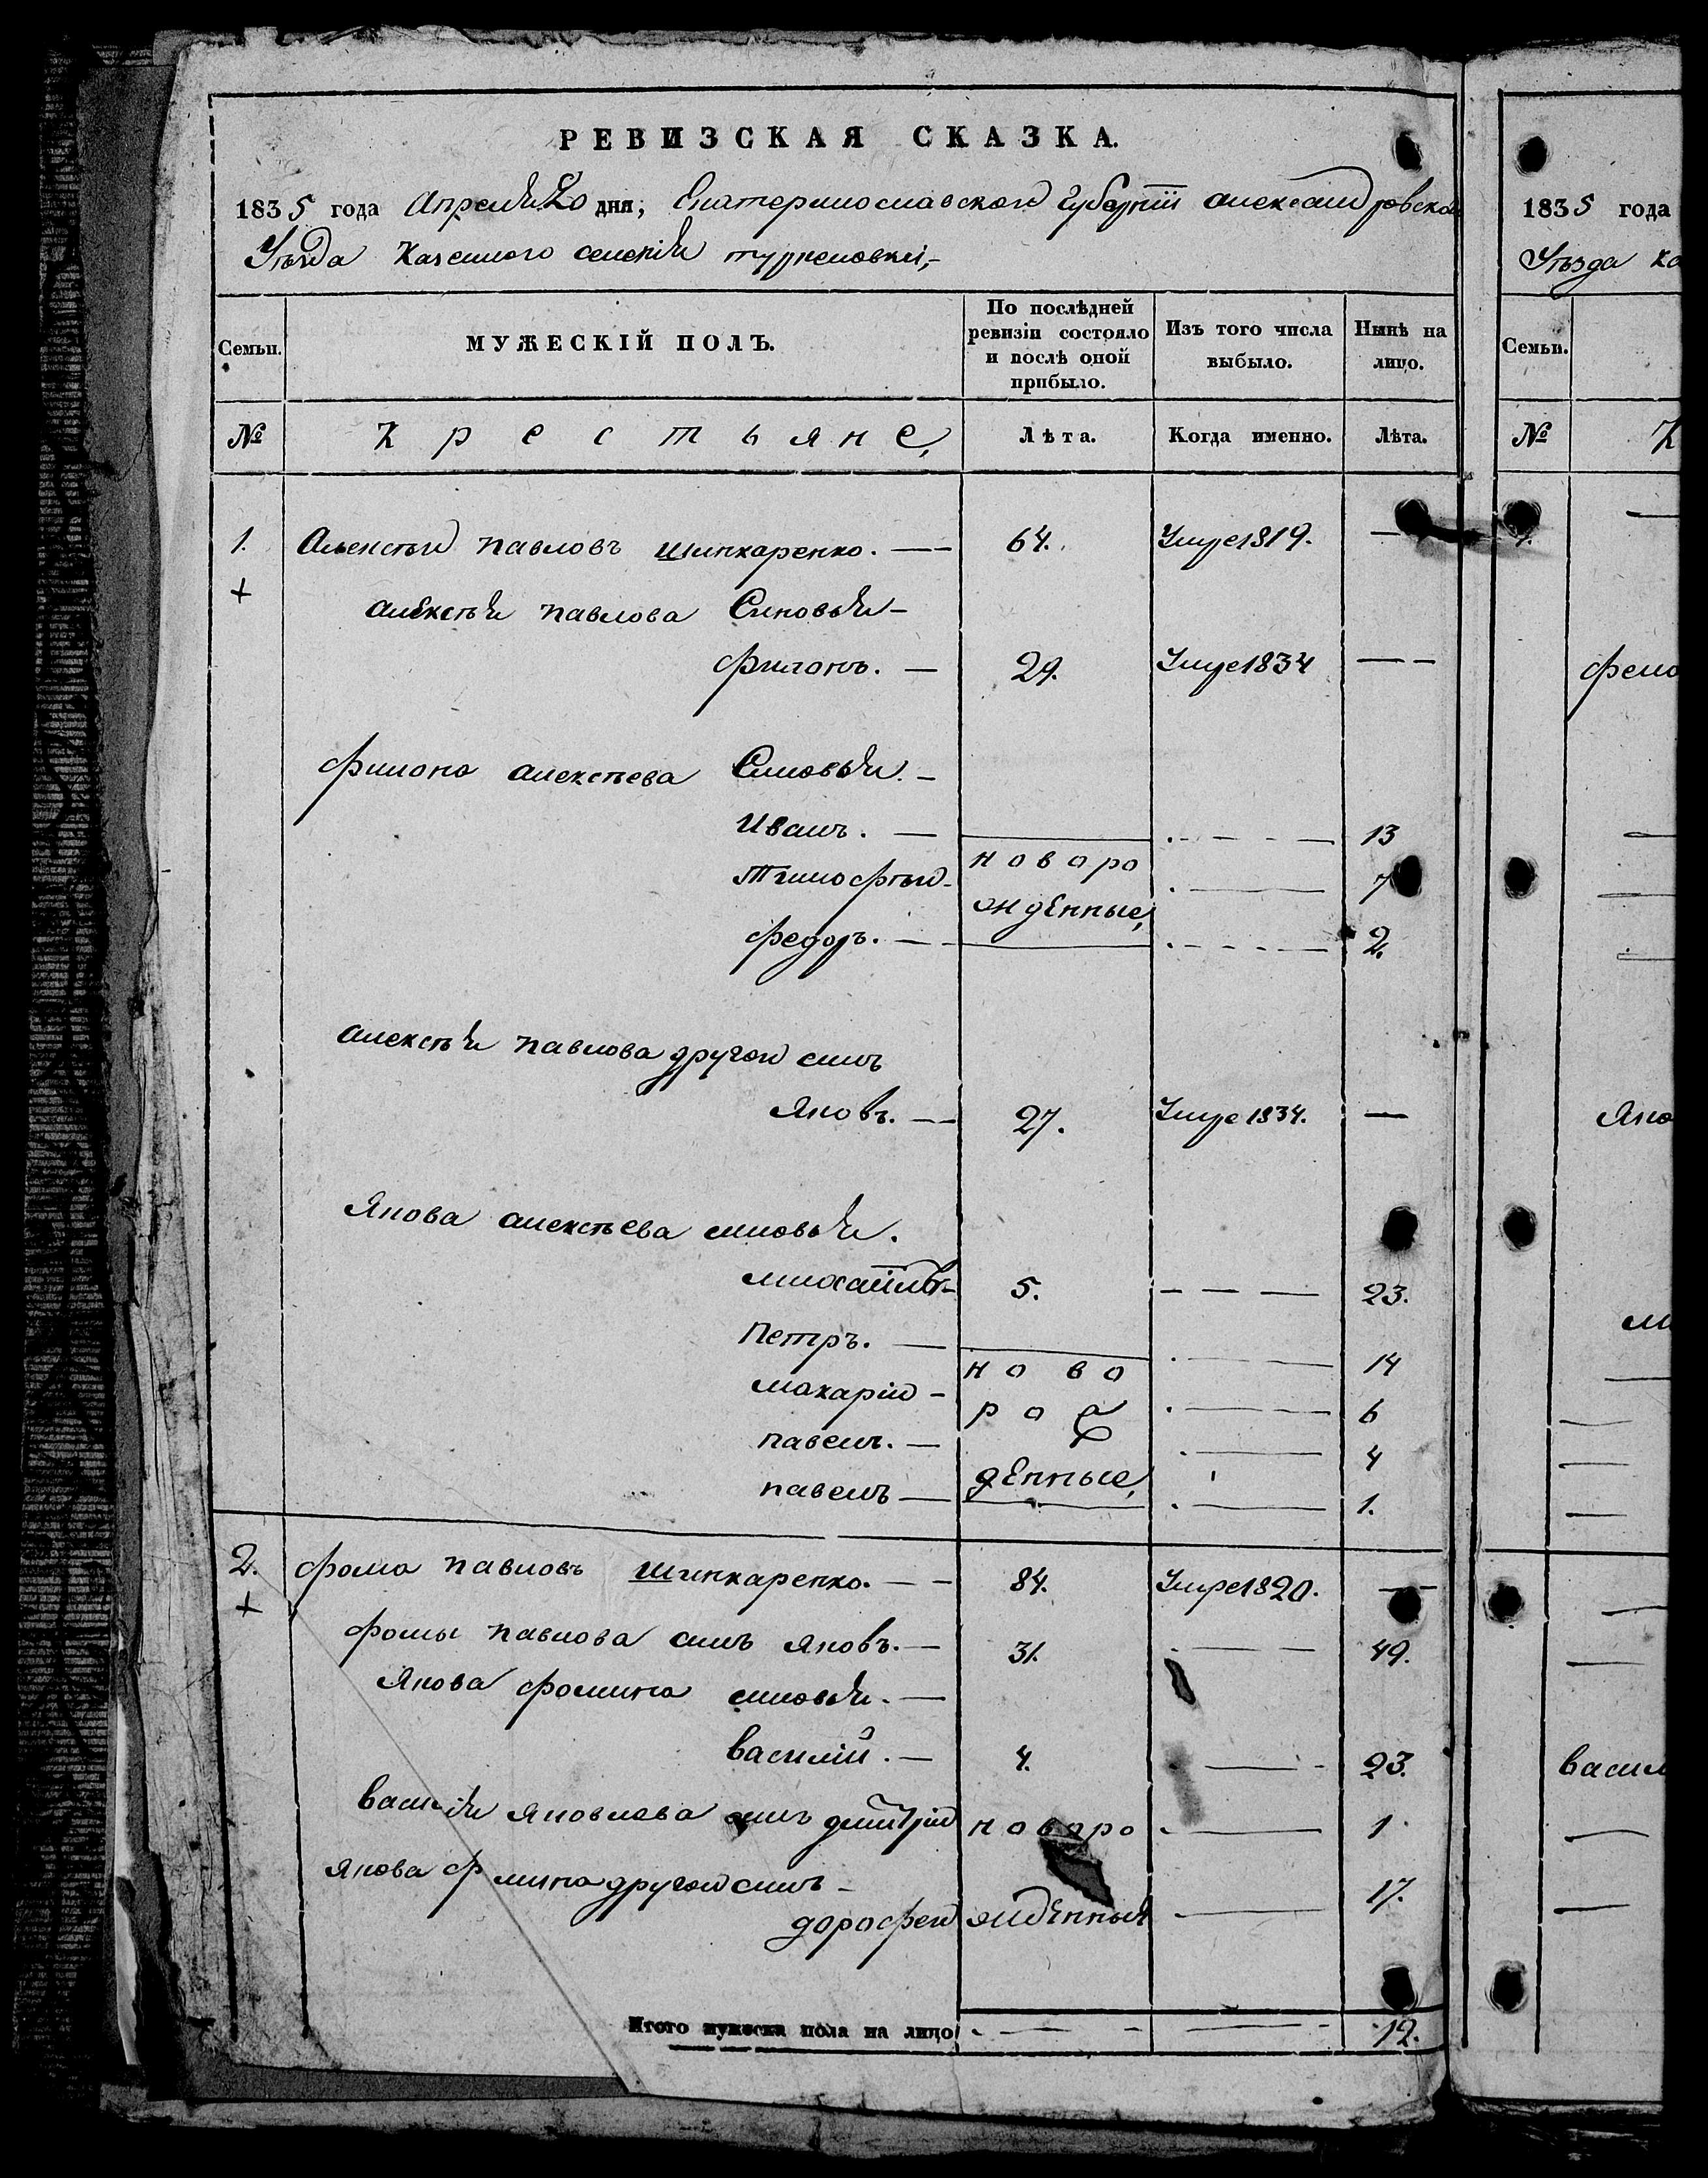 РЕВИЗСКАЯ СКАЗКА.
1835 года Апреля 20 дня, Екатеринославской губернiи александровского
Уѣзда казенного селенiя туркеновки,
Семьи. МУЖЕСКIЙ ПОЛЪ. По послѣдней ревизiи состояло и послѣ оной прибыло. Изъ того числа выбыло. Нынѣ на лицо.
№ Крестьяне, Лѣта. Когда именно. Лѣта.
1. Алексѣй павловъ шинкаренко. 64. Умре 1819. —
+ алексѣя павлова Синовья
филонъ. — 29. Умре 1834 —
филона алексѣева Синовья.
Иванъ. — новоро 13
Тимофѣй — жденные, 7
федоръ. — 2.
алексѣя павлова другой синъ
Яковъ. — 27. Умре 1834. —
Якова алексѣева синовья.
михаилъ — 5. — 23.
Петръ. — ново 14
макарiй — рож 6
павелъ. — 4
павелъ — денные, 1.
2. фома павловъ шинкаренко. — 84. Умре 1820. —
+ фомы павлова синъ яковъ. — 31. — 49.
Якова фомина синовья. —
василiй. — 4. — 23.
василiя яковлева синъ дмитрiй новоро — 1
якова ф мина другой синъ —
дорофей жденный — 17.
Итого мужеска пола на лицо — 12.
1835 года
Уѣзда ка
Семьи.
№ К
1.
фело
Яко
ми
васил